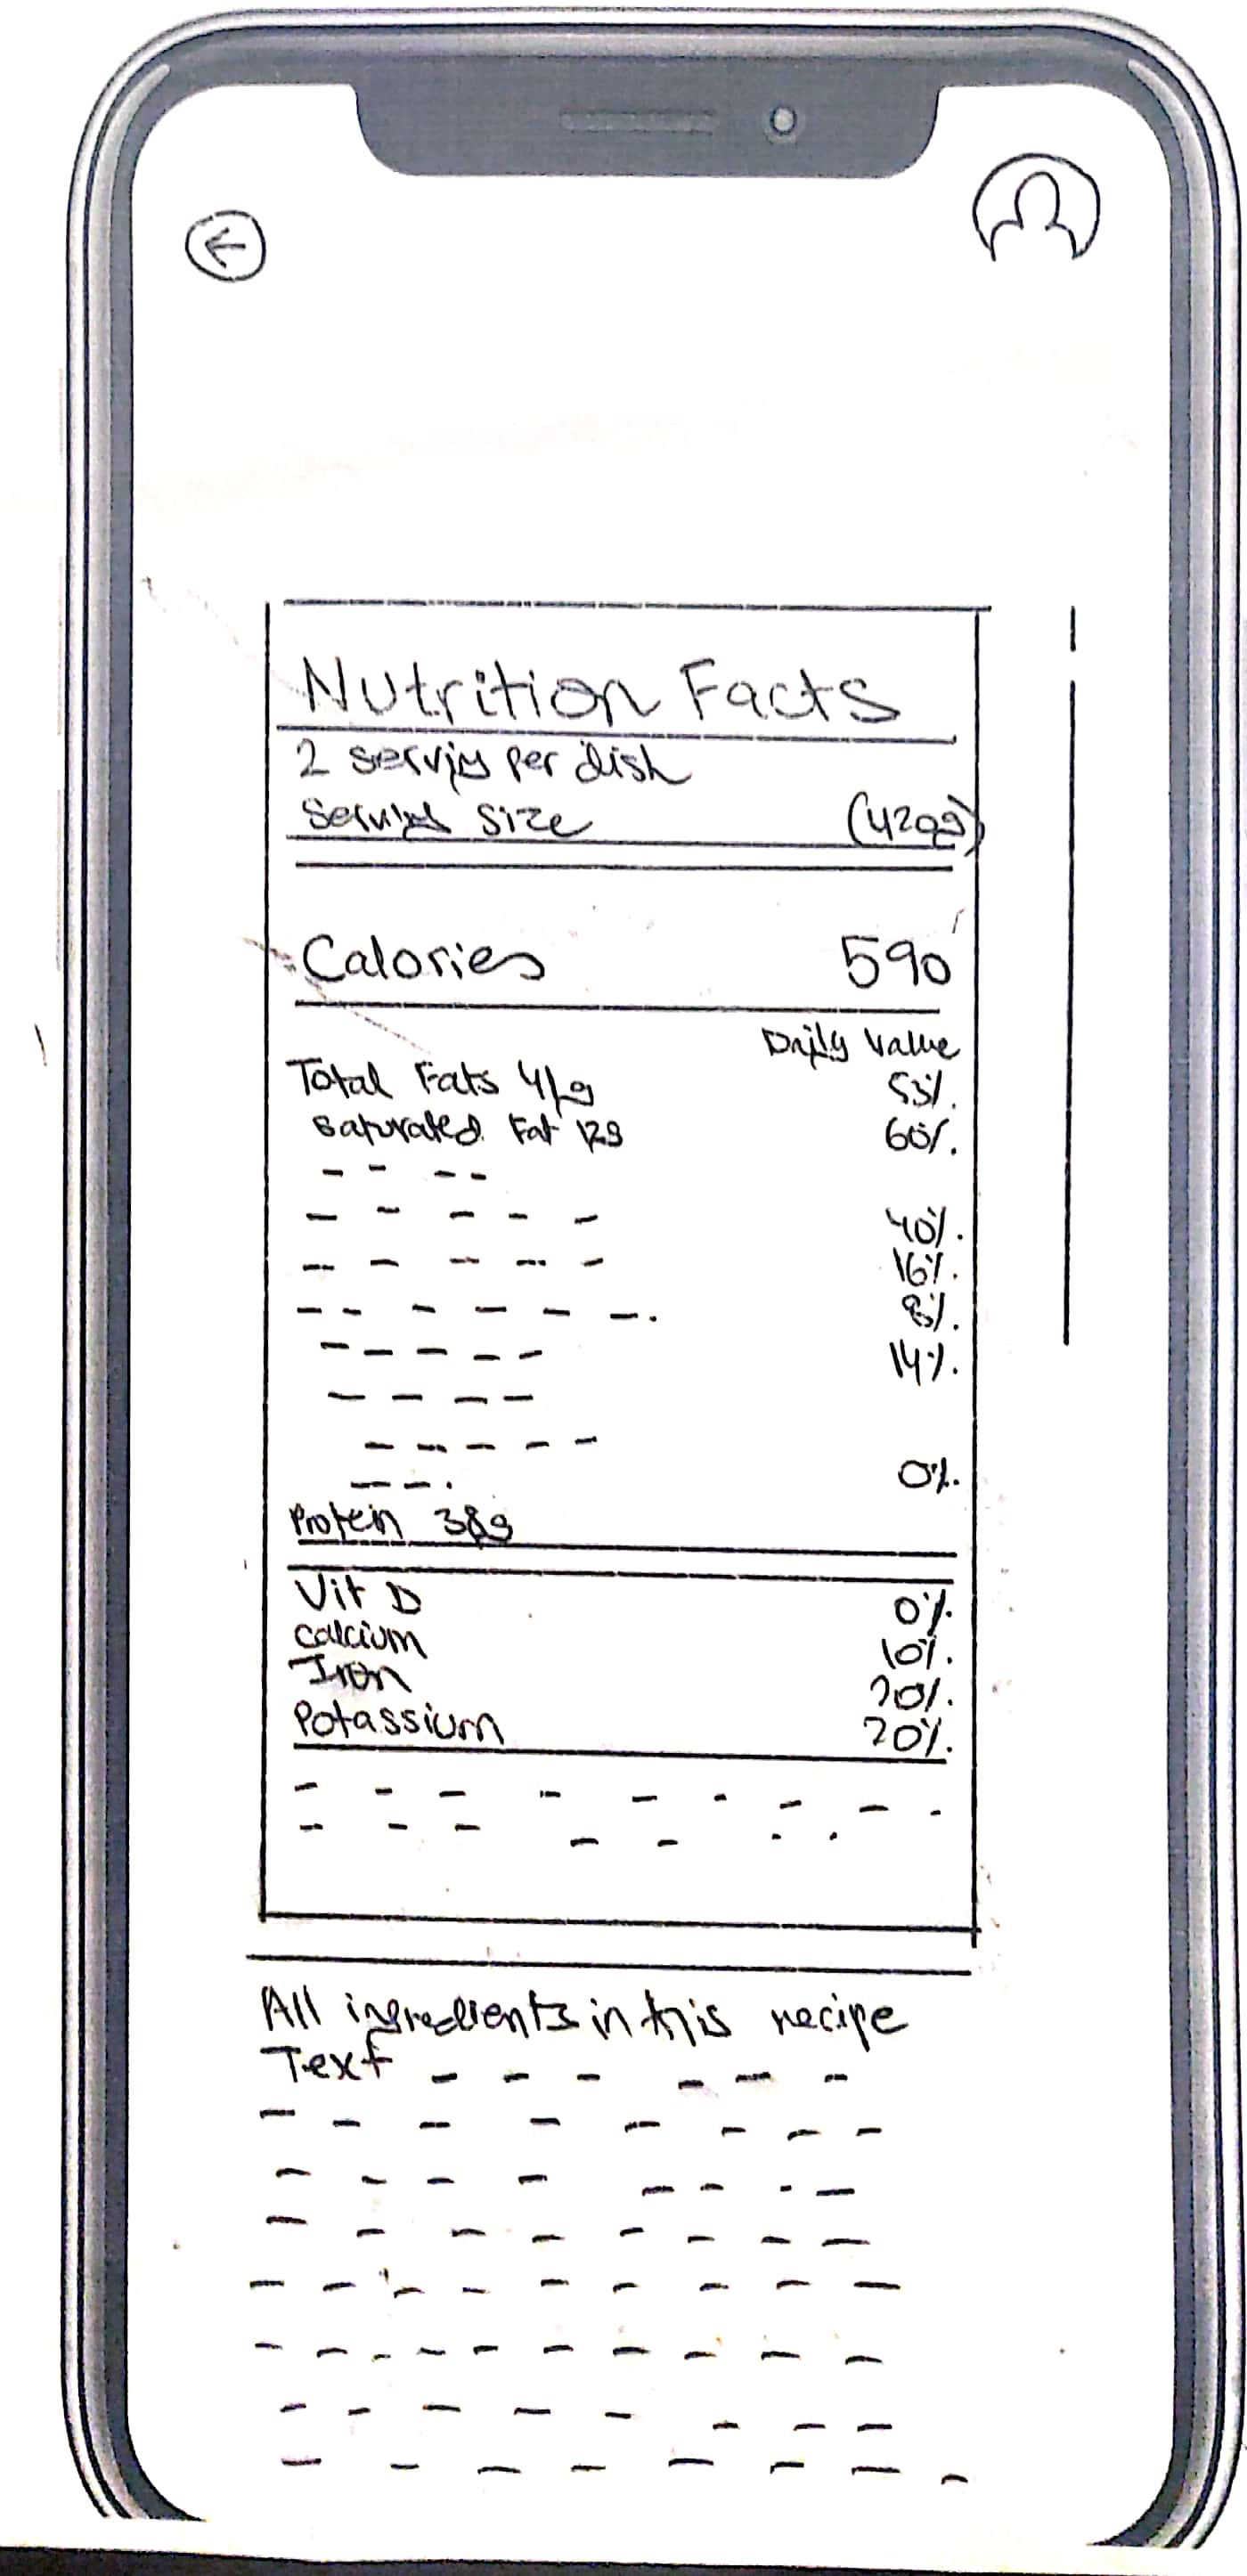 Nutrition Facts
2 serving per dish
Serving size (420g)
Calories 590
Daily Value
Total Fats 41g 53%
Saturated Fat 12g 60%
40%
16%
8%
14%
0%
Protein 38g
Vit D 0%
Calcium 10%
Iron 20%
Potassium 20%
All ingredients in this recipe
Text